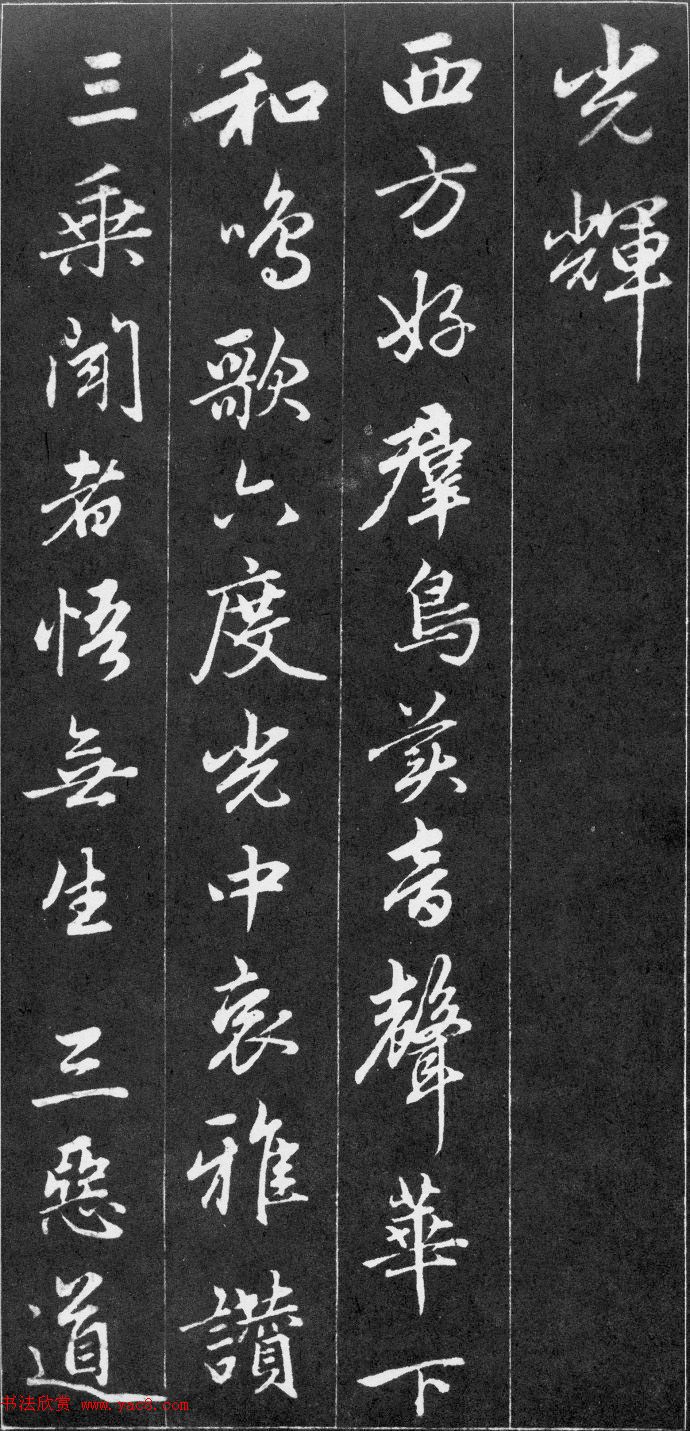 光輝
西方好群鳥美音聲華下
和鳴歌六度光中哀雅讚
三乘聞者悟無生 三惡道
书法欣赏 www.yac8.com